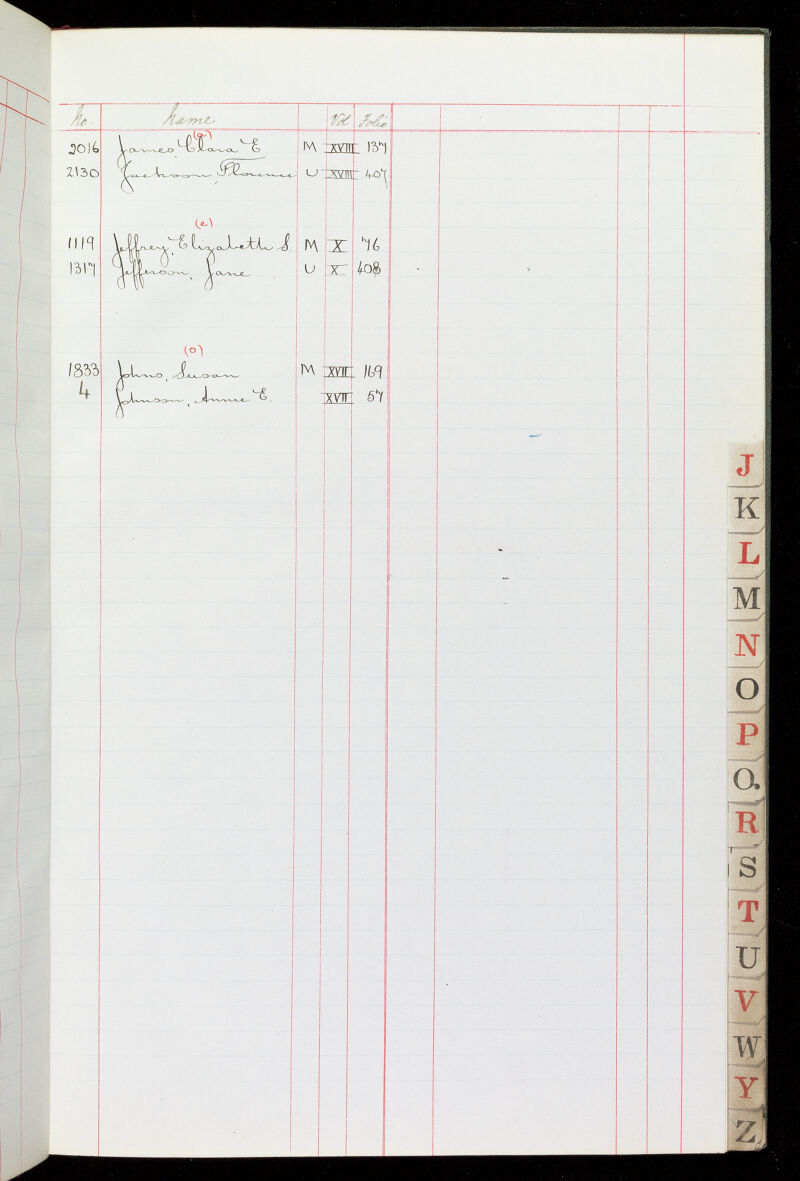 No. Name Vol Folio
(a)
2016 James, Clara E M XVIII 137
2130 Jackson, Florence U XVIII 407
(e)
1119 Jeffrey, Elizabeth S. M X 76
1317 Jefferson, Jane U X 408
(o)
1833 Johns, Susan M XVII 169
4 Johnson, Annie E. XVII 57
J
K
L
M
N
O
P
Q.
R
S
T
U
V
W
Y
Z